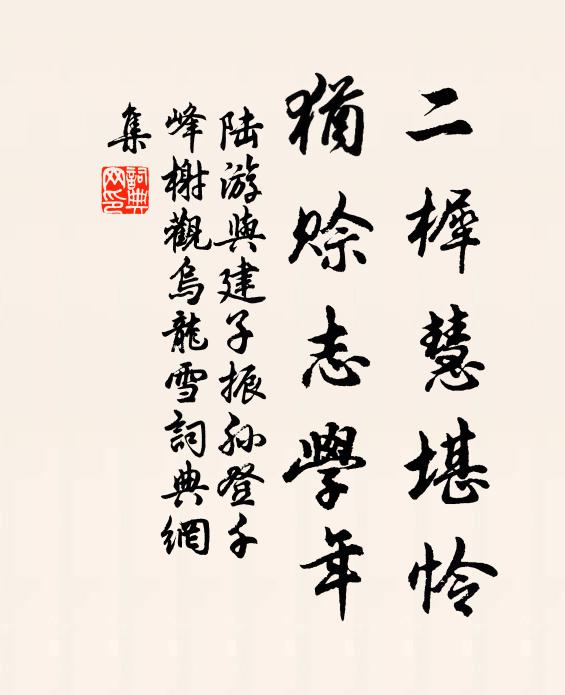 二稺慧堪怜
猶賒志學年
陸游與建子振孫登千
峰榭觀烏龍雪詞典網
集
詞典
网印